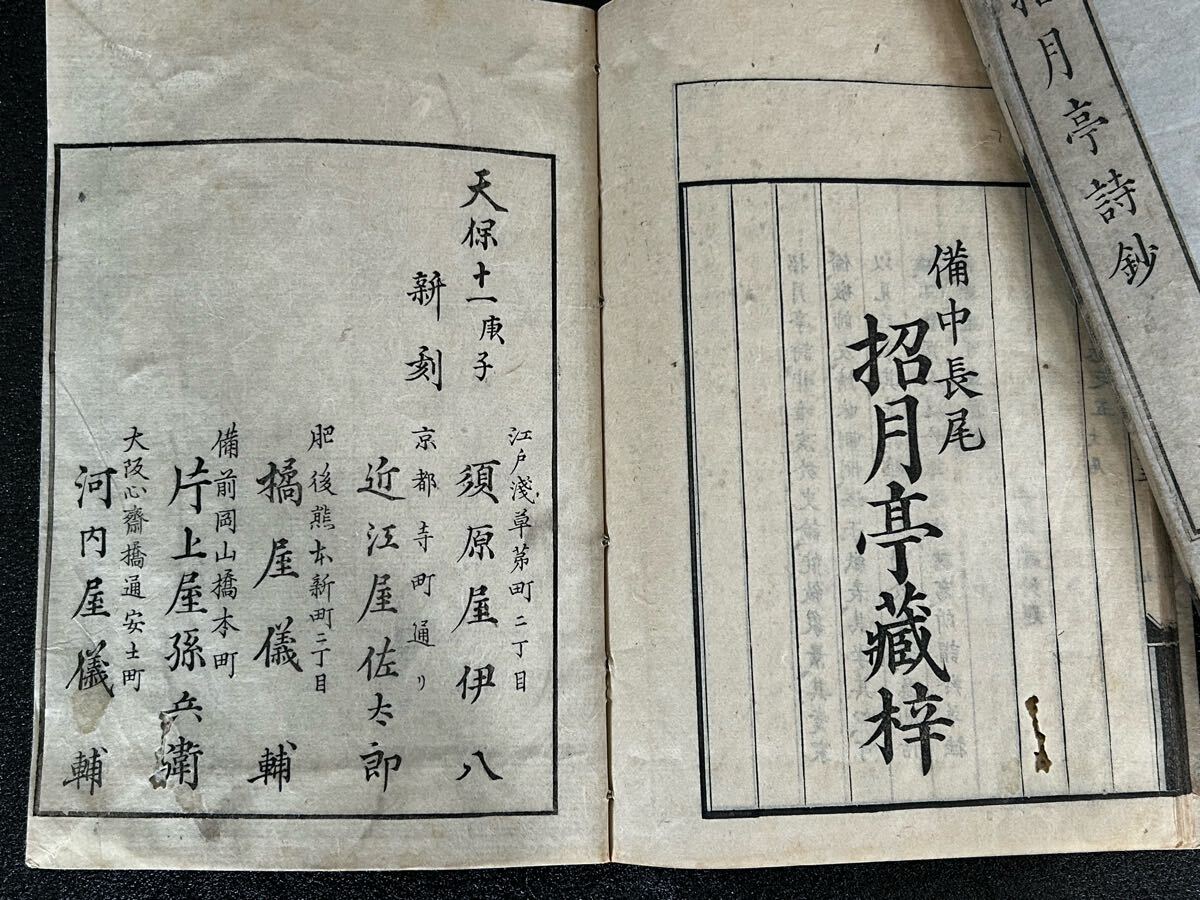 招月亭詩鈔
備中長尾
招月亭藏梓
天保十一庚子
新刻
江戸淺草茅町二丁目
須原屋伊八
京都寺町通リ
近江屋佐太郎
肥後熊本新町二丁目
橘屋儀輔
備前岡山橋本町
片上屋孫兵衛
大阪心齋橋通安土町
河内屋儀輔